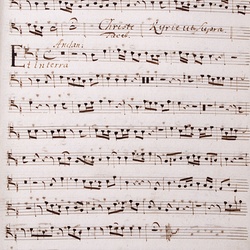 Christe Kyrie ut Supra
tacet
Andan:
Et in terra